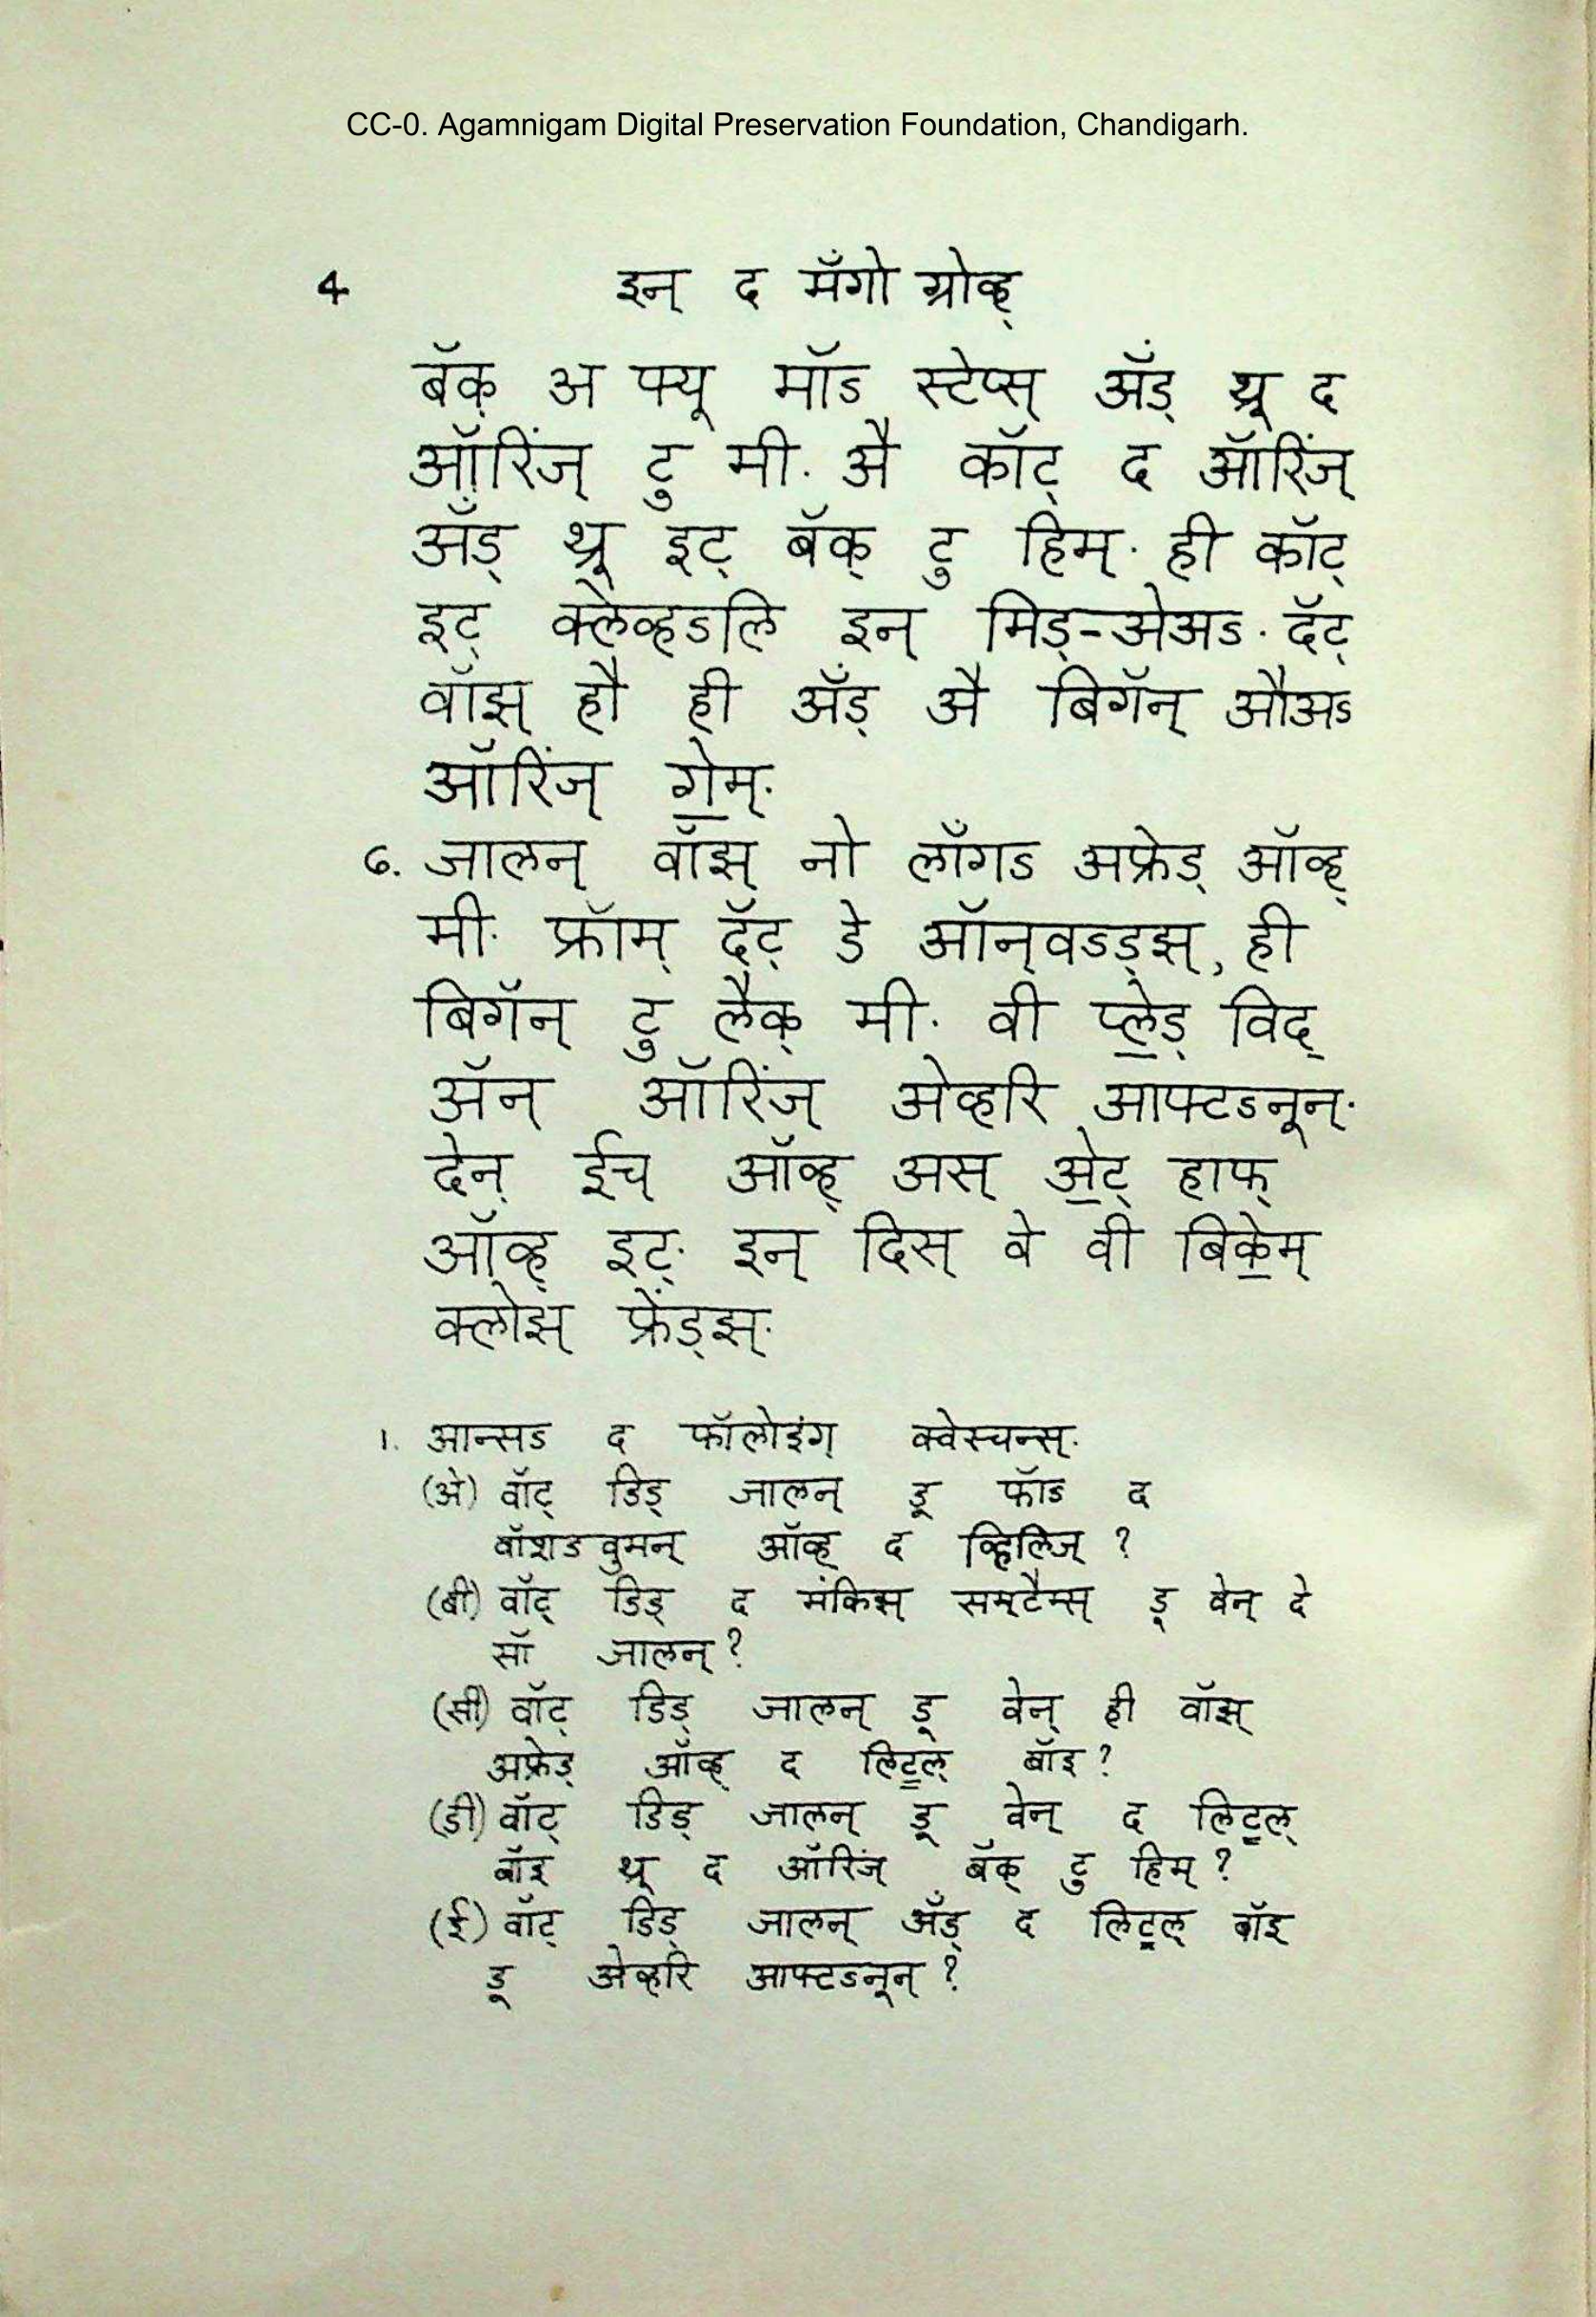 CC-0. Agamnigam Digital Preservation Foundation, Chandigarh.
4 इन् द मँगो ग्रोव्ह्
बॅक् अ फ्यू मॉऽ स्टेप्स् अँड् थ्रू द
ऑरिंज् टु मी. अै कॉट् द ऑरिंज्
अँड् थ्रू इट् बॅक् टु हिम्. ही कॉट्
इट् क्लेव्हऽलि इन् मिड्-अेअऽ. दॅट्
वॉझ् हौ ही अँड् अै बिगॅन् औअऽ
ऑरिंज् गे॒म्.
6. जालन् वॉझ् नो लाँगऽ अफ्रेड् ऑव्ह्
मी. फ्रॉम् दॅट् डे ऑन्वऽड्झ्, ही
बिगॅन् टु लैक् मी. वी प्ले॒ड् विद्
अॅन् ऑरिंज् अेव्हरि आफ्टऽनून्.
देन् ईच् ऑव्ह् अस् अे॒ट् हाफ्
ऑव्ह् इट्. इन् दिस् वे वी बिके॒म्
क्लोझ् फ्रेंड्झ्.
1. आन्सऽ द फॉलोइंग् क्वेस्चन्स्.
(अे) वॉट् डिड् जालन् डू फॉऽ द
वॉशऽवुमन् ऑव्ह् द व्हिलिज् ?
(बी) वॉट् डिड् द मंकिझ् सम्टैम्स् डू वेन् दे
सॉ जालन् ?
(सी) वॉट् डिड् जालन् डू वेन् ही वॉझ्
अफ्रेड् ऑव्ह् द लिट॒ल् बॉइ ?
(डी) वॉट् डिड् जालन् डू वेन् द लिट॒ल्
बॉइ थ्रू द ऑरिंज् बॅक् टु हिम् ?
(ई) वॉट् डिड् जालन् अँड् द लिट॒ल् बॉइ
डू अेव्हरि आफ्टऽनून् ?